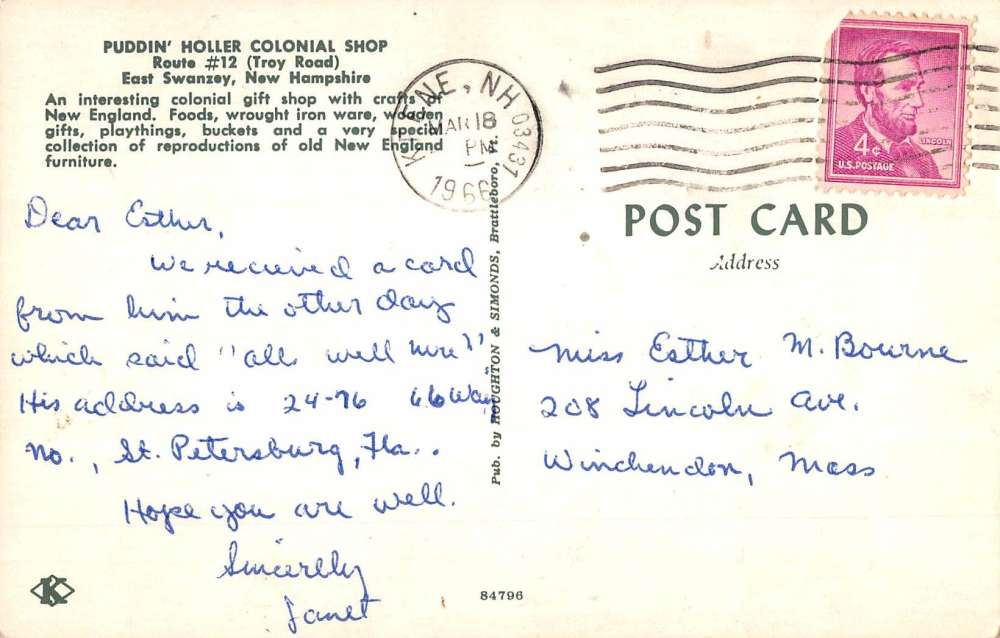 PUDDIN' HOLLER COLONIAL SHOP
Route #12 (Troy Road)
East Swanzey, New Hampshire
An interesting colonial gift shop with crafts of
New England. Foods, wrought iron ware, wooden
gifts, playthings, buckets and a very special
collection of reproductions of old New England
furniture.
KEENE, NH 03431
MAR 18
PM
1966
4¢
U.S. POSTAGE
LINCOLN
POST CARD
Address
Dear Esther,
We received a card
from him the other day
which said "all well here"
His address is 24-76 66 Way
No., St. Petersburg, Fla..
Hope you are well.
Sincerely
Janet
Pub. by HOUGHTON & SIMONDS, Brattleboro, Vt.
Miss Esther M. Bourne
208 Lincoln Ave.
Winchendon, Mass
K
84796